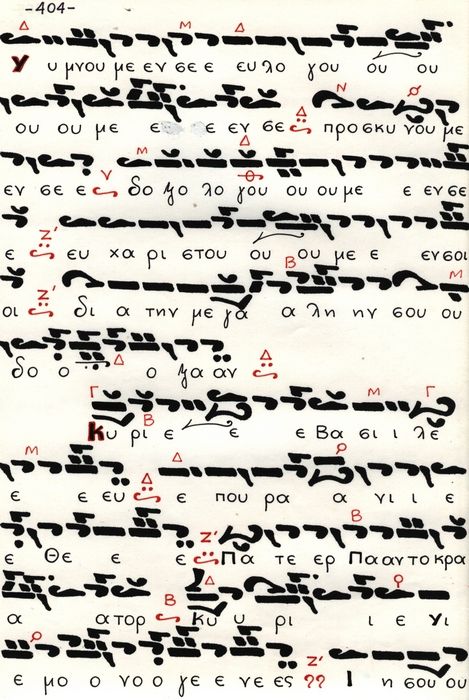 -404-
Υ υ μνου με εν σε ε ευ λο γου ου ου
ου ου με ε ε εν σε προσκυ νου με
εν σε ε δο ξο λο γου ου ου με ε εν σε
ε ευ χα ρι στου ου ου με ε εν σοι
οι δι α την με γα α λη ην σου ου
δο ο ο ξα αν
Κυ ρι ε ε ε Βα σι ι λε
ε ε ευ ε που ρα α νι ι ε
ε Θε ε ε Πα τε ερ Πα αντο κρα
α ατορ κυ υ ρι ι ε Υι
ε μο ο νο ο γε ε νε ες Ι η σου ου